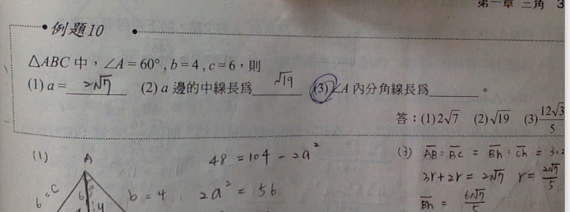 第一章 三角 3
例題10
△ABC 中，∠A=60°, b=4, c=6，則
(1) a= 2√7 (2) a 邊的中線長為 √19 (3) ∠A 內分角線長為 。
答：(1) 2√7 (2) √19 (3) 12√3/5
(1) A
b=4
48 = 104 - 2a²
2a² = 56
(3) AB : BC = Bh : Ch = 3:2
3r + 2r = 2√7 r = 2√7/5
Bh = 6√7/5